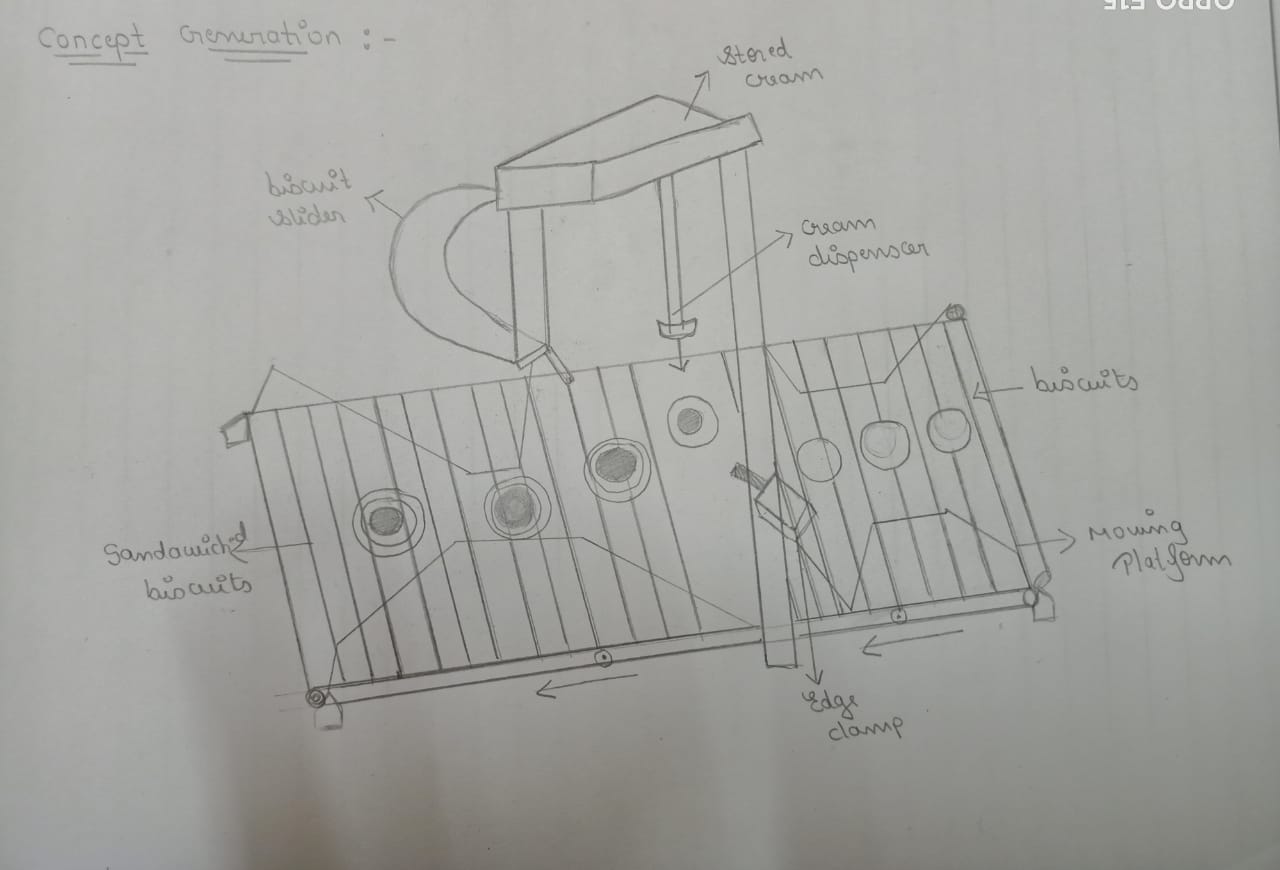 Concept Generation :-
Stored
cream
biscuit
slider
cream
dispenser
biscuits
Sandwiched
biscuits
Moving
Platform
Edge
clamp
OPPO F15